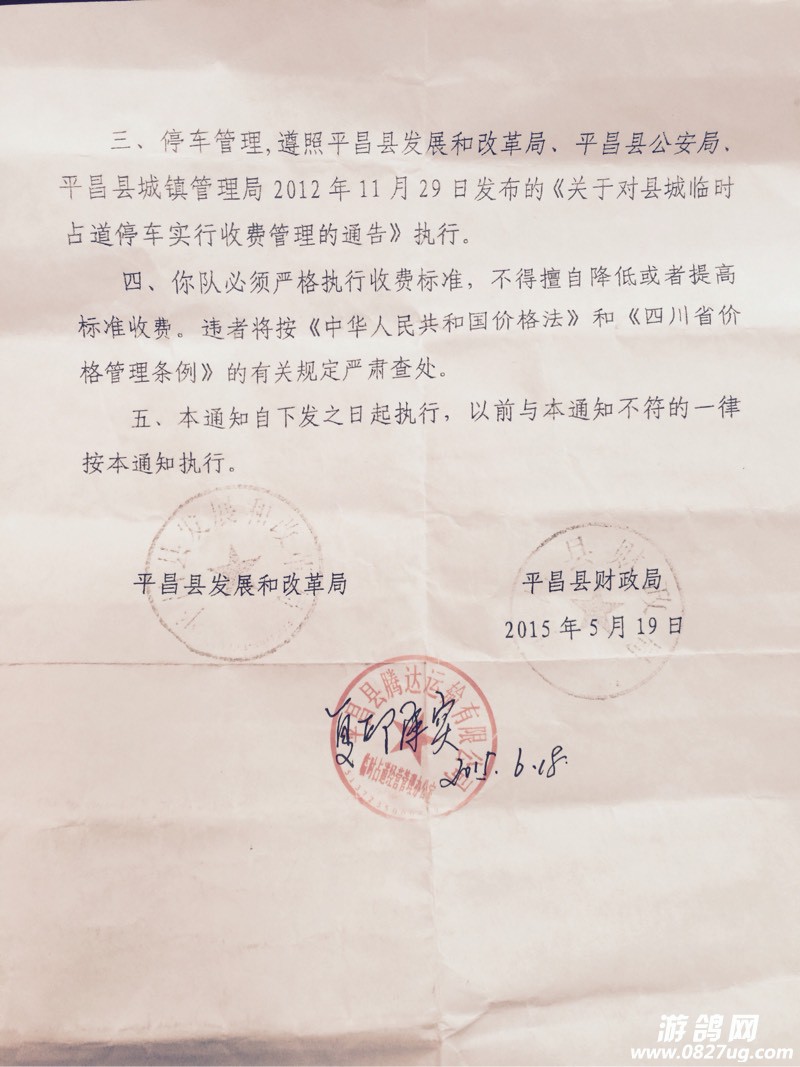 三、停车管理,遵照平昌县发展和改革局、平昌县公安局、
平昌县城镇管理局2012年11月29日发布的《关于对县城临时
占道停车实行收费管理的通告》执行。
四、你队必须严格执行收费标准，不得擅自降低或者提高
标准收费。违者将按《中华人民共和国价格法》和《四川省价
格管理条例》的有关规定严肃查处。
五、本通知自下发之日起执行，以前与本通知不符的一律
按本通知执行。
县发展和改革
县财政局
平昌县发展和改革局
平昌县财政局
2015年5月19日
平昌县腾达运输有限公司
临时占道经营管理办公室
复印属实
2015.6.18.
游鸽网
www.0827ug.com